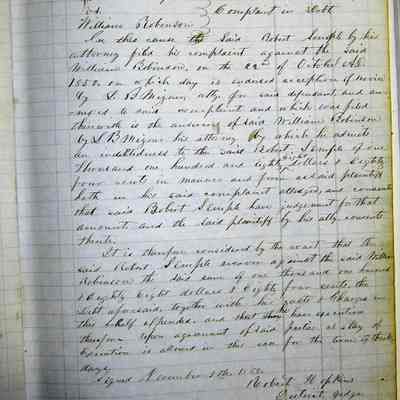 vs. Complaint in Debt
William Robinson
In this cause the Said Robert Semple by his
attorney filed his complaint against the said
William Robinson, on the 22nd of October A.D.
1850. on which day is endorsed acception of service
by L. B Mizner, atty for said defendant and an-
annexed to said complaint and which was filed
therewith is the answer of said William Robinson
by L. B Mizner his attorney, By which he admits
an indebtedness to the said Robert Semple of one
thousand one hundred and eighty eight Dollars & Eighty
four cents in manner and form as said plaintiff
hath in his said complaint alledged, and consents
that said Robert Semple have judgement for that
amount and the said plaintiff by his atty consents
thereto.
It is therefore considered by the court that the
said Robert Semple recover against the said William
Robinson the said sum of one thousand one hundred
& Eighty Eight dollars & Eighty four cents, the
Debt aforesaid, together with his costs & Charges in
this behalf expended. and that have execution
therefor. upon agreement of said parties a stay of
Execution is allowed in this case for the time of thirty
days.
Signed November 4th 1850.
Robert Hopkins
District Judge